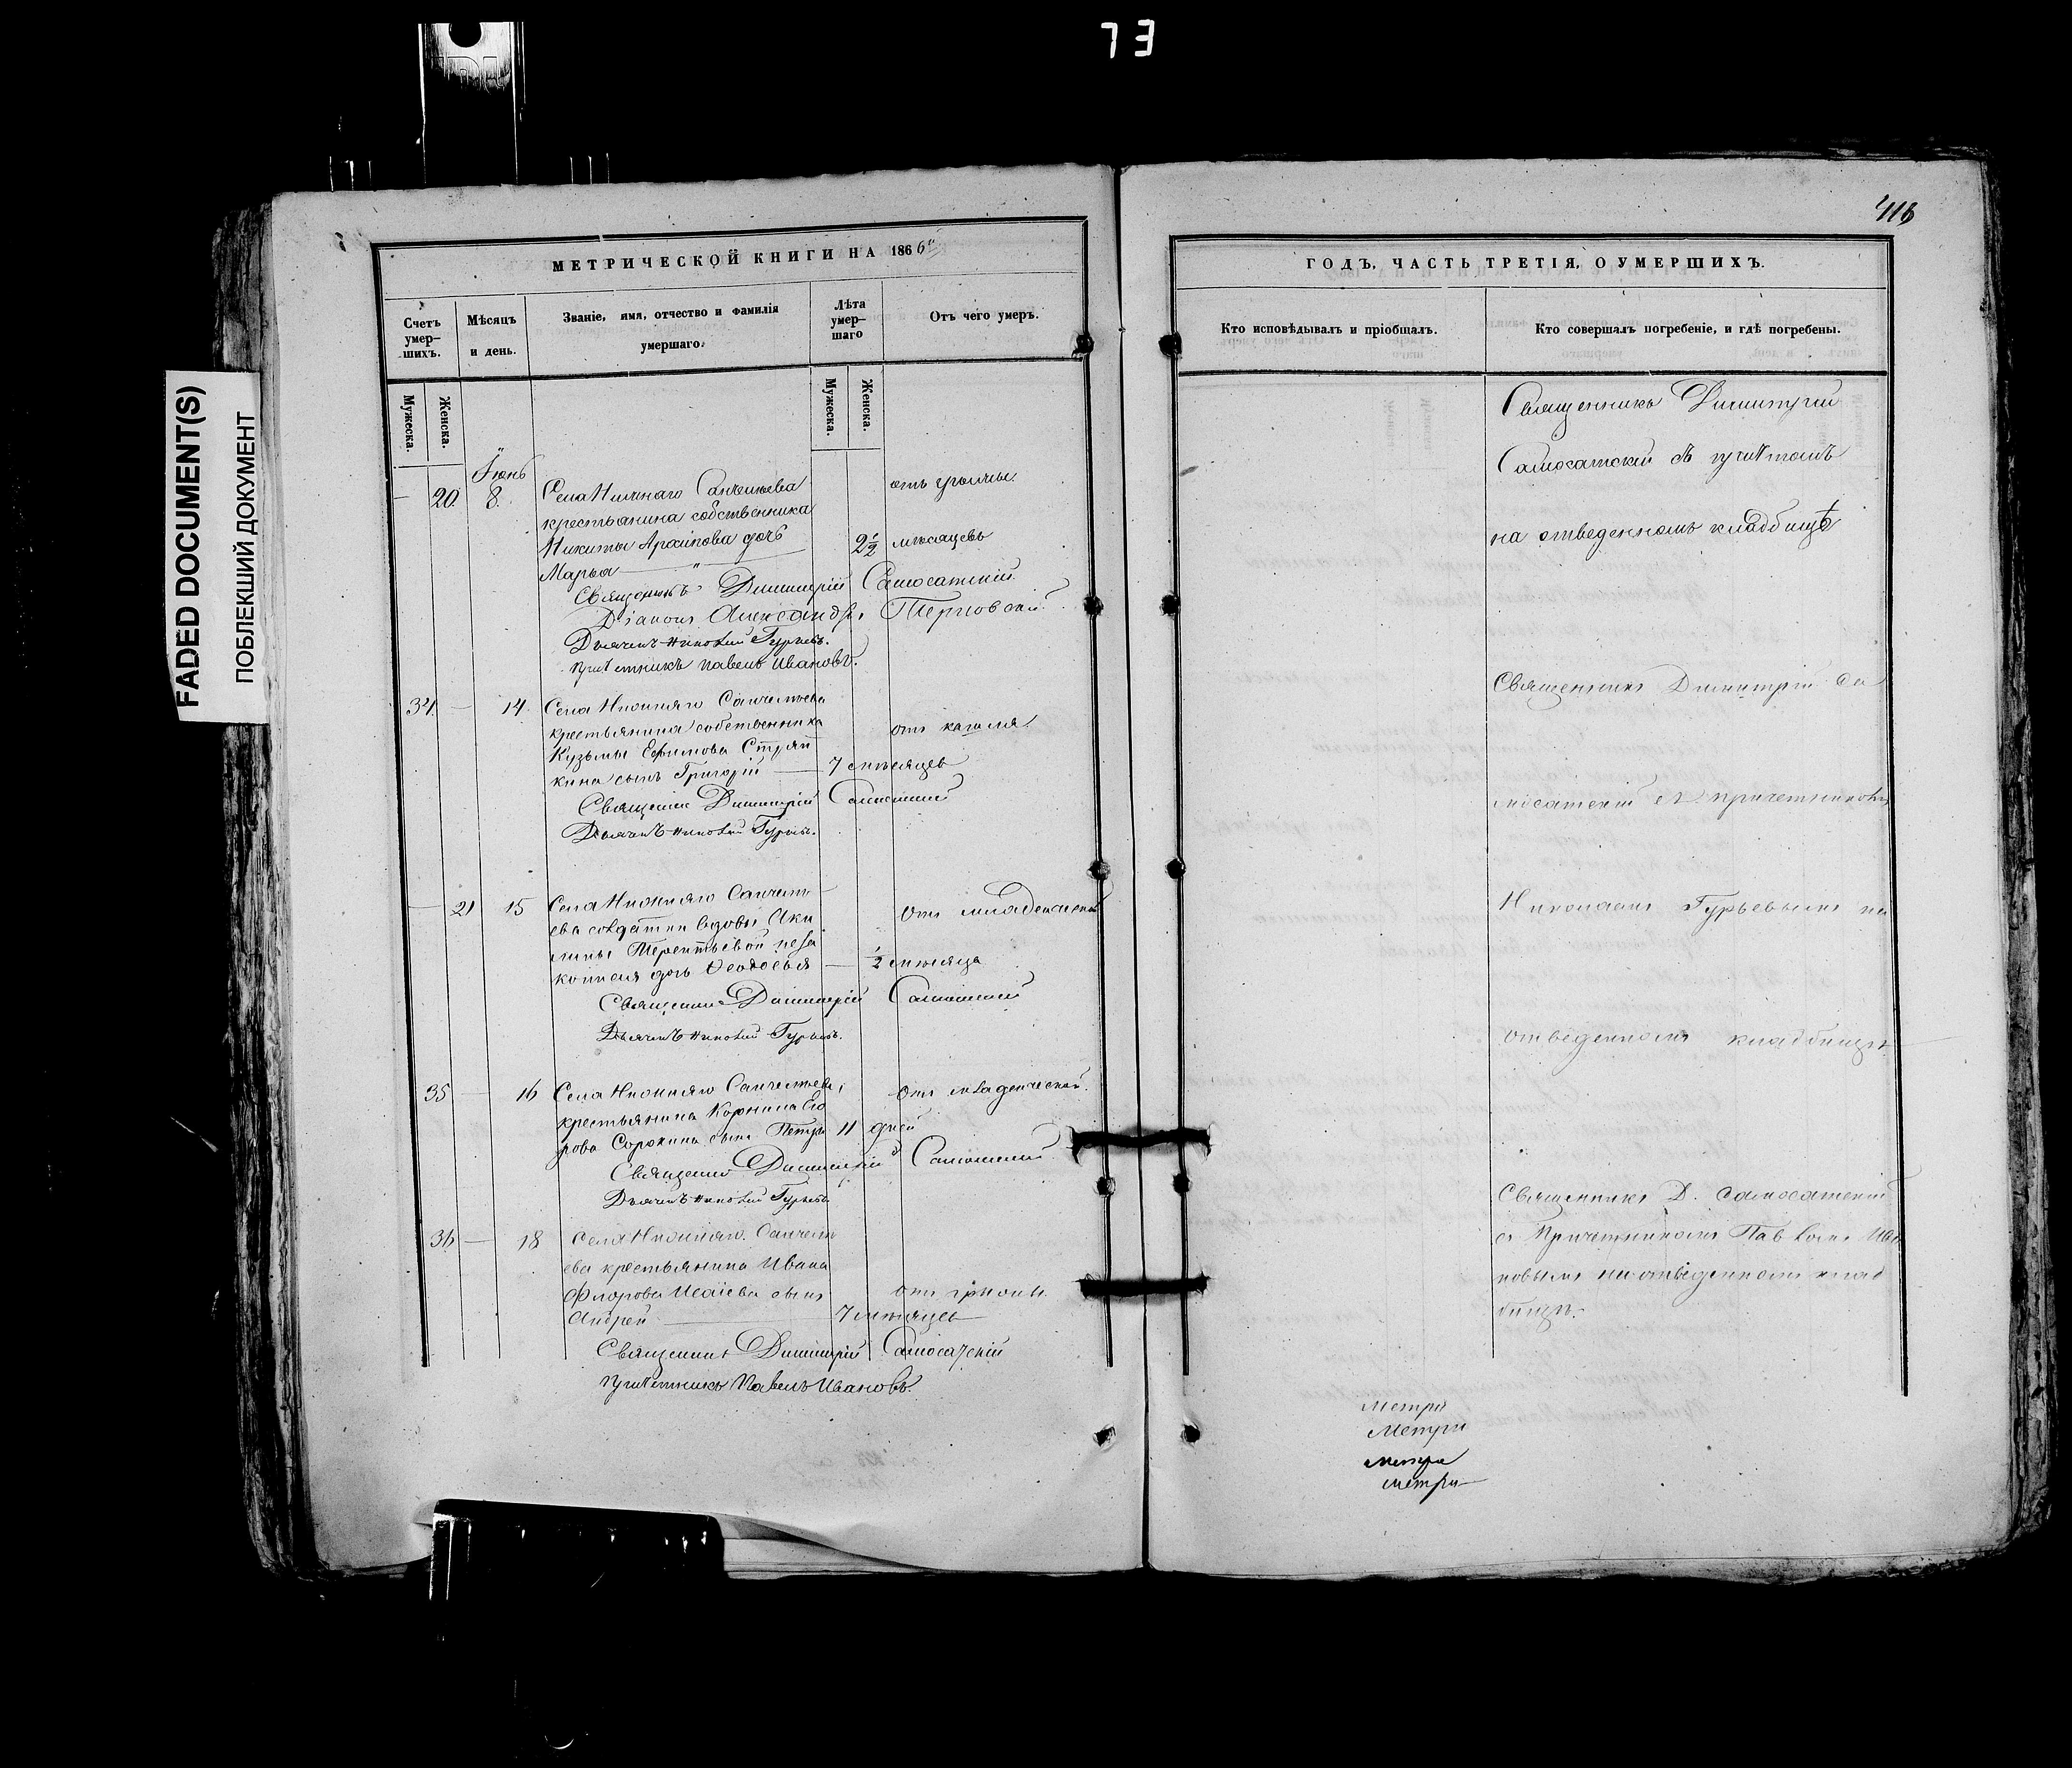 73
FADED DOCUMENT(S)
ПОБЛЕКШИЙ ДОКУМЕНТ
МЕТРИЧЕСКОЙ КНИГИ НА 1866й
Счетъ умер-шихъ.
Мѣсяцъ и день.
Званіе, имя, отчество и фамилія умершаго.
Лѣта умер-шаго
Отъ чего умеръ.
Мужеска.
Женска.
Мужеска.
Женска.
Іюнь
— 20. 8.
Села Нижняго Санчелеева
отъ грыжы.
крестьянина собственника
Никиты Архипова дочь
2½ мѣсяцевъ
Марья
Священникъ Димитрій Самосатскій.
Діаконъ Александръ Терновскій.
Дьячекъ Николай Гурьевъ.
Причетникъ Павелъ Ивановъ.
34. — 14.
Села Нижняго Санчелеева
крестьянина собственника
отъ кашля.
Кузьмы Ефимова Стряп
кина сынъ Григорій — 7 мѣсяцев
Священникъ Димитрій Самосатскій
Дьячекъ Николай Гурьевъ.
— 21 15
Села Нижняго Санчеле
отъ младенческой
ева солдатки вдовы Аки
лины Терентьевой неза
конная дочь Ѳеодосья — ½ мѣсяца
Священникъ Димитрій Самосатскій
Дьячекъ Николай Гурьевъ.
35 — 16
Села Нижняго Санчелеева,
отъ младенческой.
крестьянина Корнила Его
рова Сорокина сынъ Петръ 11 дней
Священникъ Димитрій Самосатскій
Дьячекъ Николай Гурьевъ
36 — 18
Села Нижняго Санчеле
ева крестьянина Ивана
Флорова Исаіева сынъ
отъ грыжи.
Андрей — 7 мѣсяцев
Священникъ Димитрій Самосатскій
Причетникъ Павелъ Ивановъ.
ГОДЪ, ЧАСТЬ ТРЕТІЯ, О УМЕРШИХЪ.
Кто исповѣдывалъ и пріобщалъ.
Кто совершалъ погребеніе, и гдѣ погребены.
Священникъ Димитрій
Самосатскій съ причтомъ
на отведенномъ кладбищѣ
Священникъ Димитрій Са
мосатскій съ причетникомъ
Николаемъ Гурьевымъ на
отведенномъ кладбищѣ
Священникъ Д. Самосатскій
съ Причетникомъ Павломъ Ива
новымъ на отведенномъ клад
бищѣ.
Метри
Метри
Метри
Метри